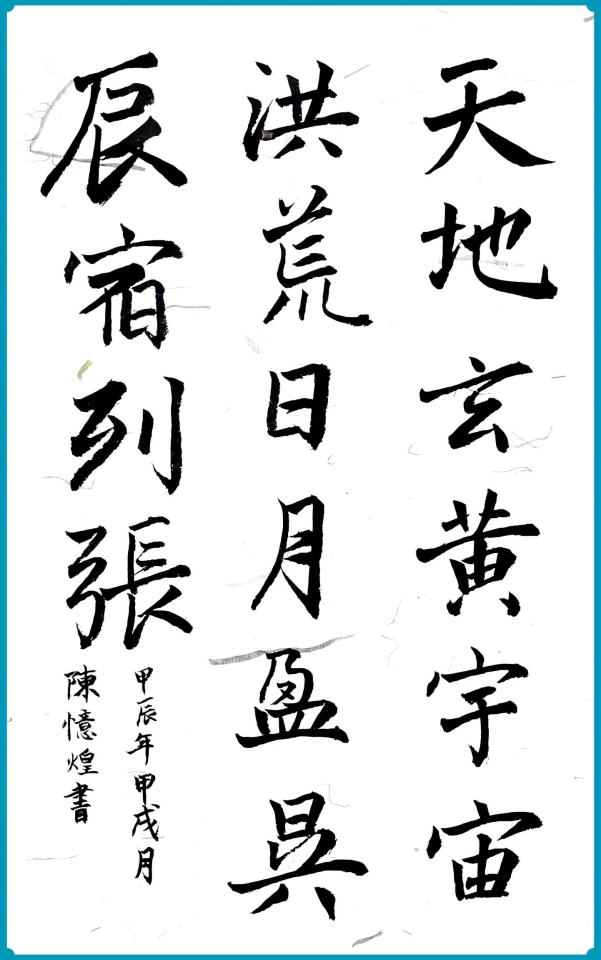 天地玄黃宇宙
洪荒日月盈昃
辰宿列張
甲辰年甲戌月
陳憶煌書